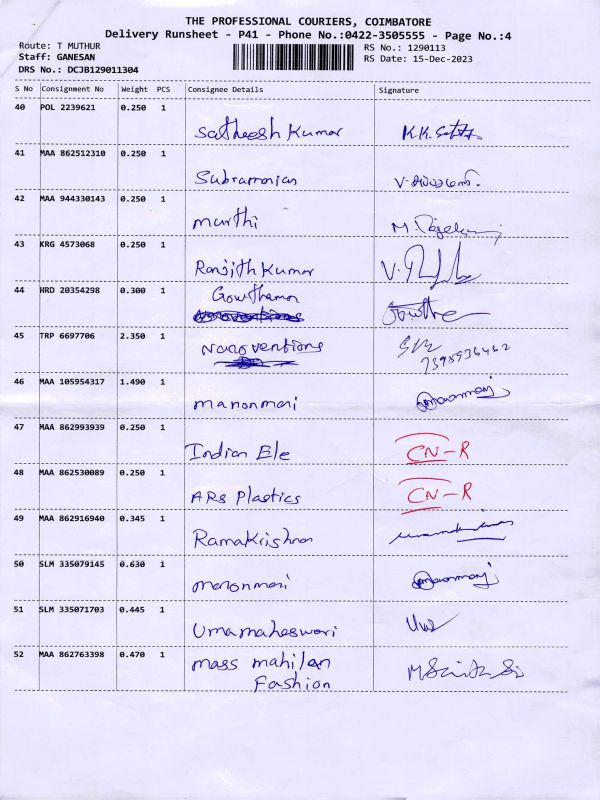 THE PROFESSIONAL COURIERS, COIMBATORE
Delivery Runsheet - P41 - Phone No.:0422-3505555 - Page No.:4
Route: T MUTHUR RS No.: 1290113
Staff: GANESAN RS Date: 15-Dec-2023
DRS No.: DCJB129011304
S No Consignment No Weight PCS Consignee Details Signature
40 POL 2239621 0.250 1
Satheesh Kumar
41 MAA 862512310 0.250 1
Subramanian
42 MAA 944330143 0.250 1
Murthi
43 KRG 4573068 0.250 1
Ranjith Kumar
44 HRD 20354298 0.300 1 Gowthaman
45 TRP 6697706 2.350 1
Nanoventions 7398936462
46 MAA 105954317 1.490 1
manonmani
47 MAA 862993939 0.250 1
Indian Ele CN-R
48 MAA 862530089 0.250 1
ARS Plastics CN-R
49 MAA 862916940 0.345 1
Ramakrishnan
50 SLM 335079145 0.630 1
manonmani
51 SLM 335071703 0.445 1
Umamaheswari
52 MAA 862763398 0.470 1
mass mahilan
Fashion